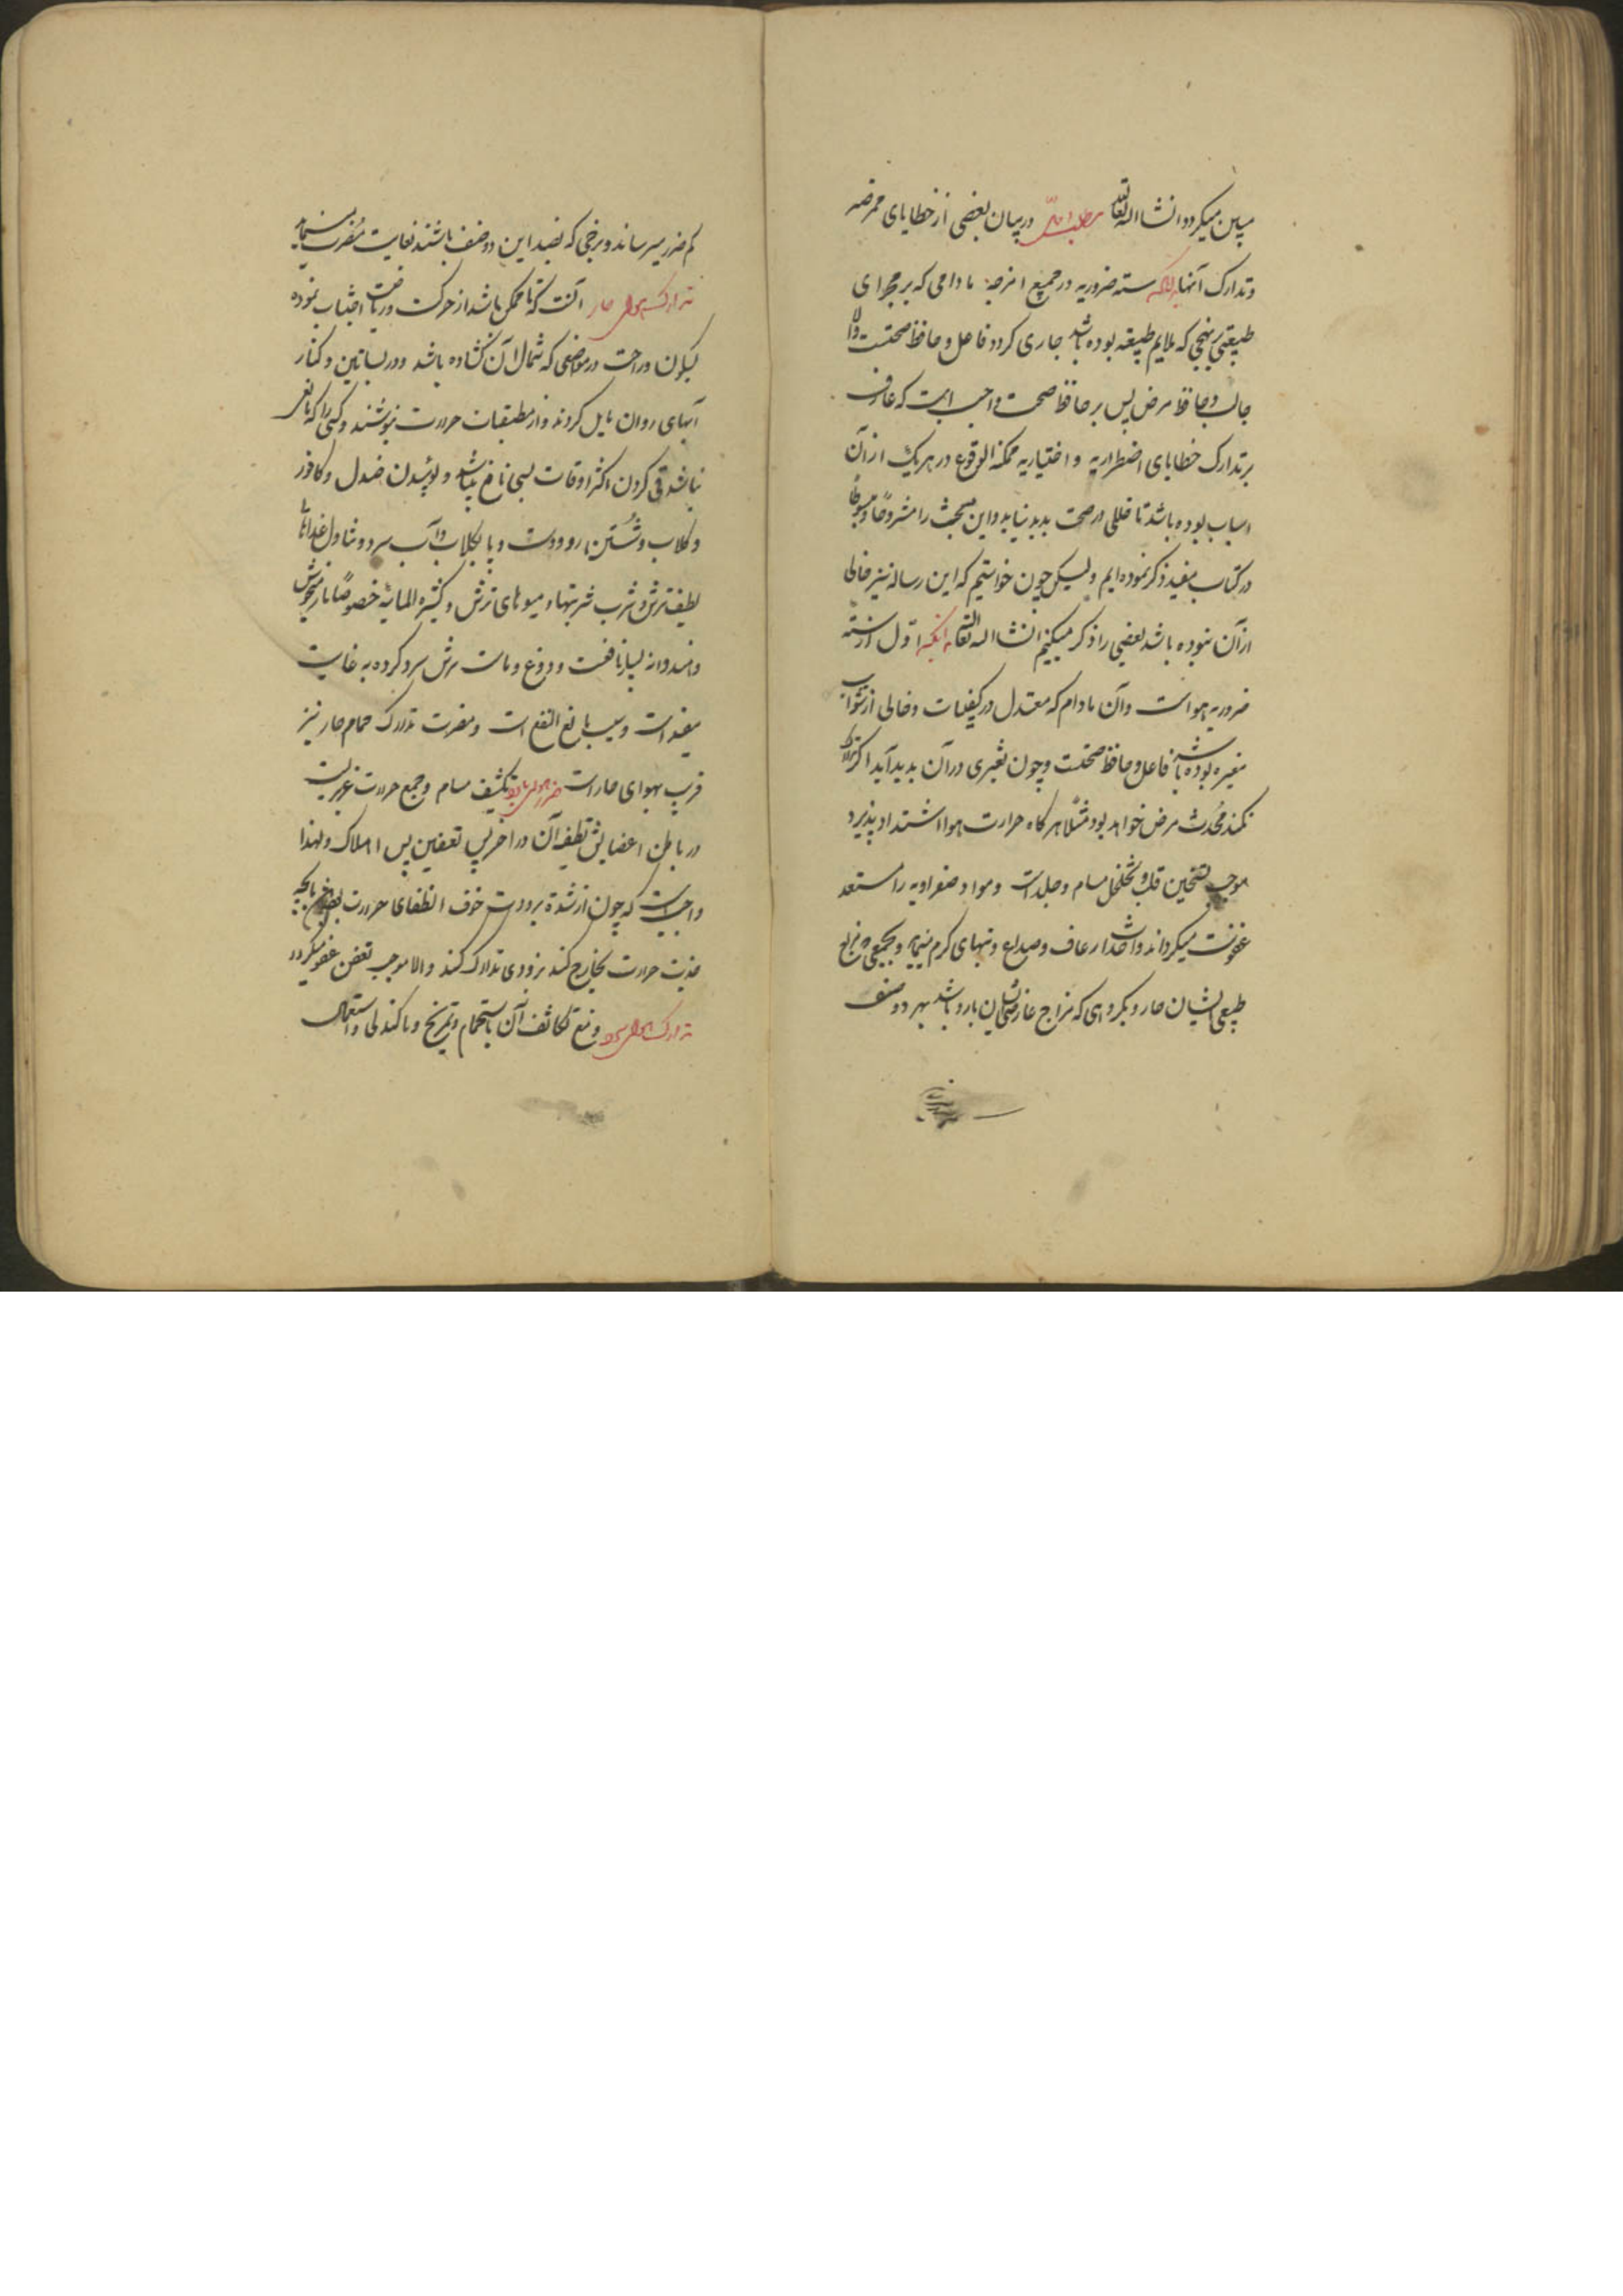 مبین میگردد انشا الله تعالی در بیان بعضی از خطایای ممرضه
و تدارک آنها بدانکه سته ضروریه در جمیع امزجه مادامی که بر مجرای
طبیعی بنهجی که ملایم طبیعة بوده باشد جاری کردد فاعل و حافظ صحتست والا
جالب و حافظ مرض پس بر حافظ صحت واجب است که عارف
بر تدارک خطایای اضطراریه و اختیاریه ممکنة الوقوع در هر یک از آن
اسباب بوده باشد تا خللی در صحت پدید نیاید و این مبحث را مشروحًا و مبسوطًا
در کتاب مفید ذکر نموده ایم ولیکن چون خواستیم که این رساله نیز خالی
از آن نبوده باشد بعضی را ذکر میکنیم انشا الله تعالی اول از سته
ضروریه هواست و آن مادام که معتدل در کیفیات و خالی از شوائب
مغیره بوده باشد فاعل و حافظ صحتست و چون تغیری در آن پدید آید اکر تدارک
نکنند محدث مرض خواهد بود مثلًا هر کاه حرارت هوا اشتداد پذیرد
موجب تسخین قلب و تخلخل مسام و جلد است و مواد صفراویه را مستعد
عفونت میکرداند و احداث رعاف و صداع و تبهای کرم مینماید و بجمعی که مزاج
طبیعی ایشان حار و بکروهی که مزاج عارضی ایشان بارد باشد بهر دو صنف
کم ضرر میرساند و برخی که بضد این دو صنف باشند بغایت مضرت مینماید
تدارک هوای حار آنست که تا ممکن باشد از حرکت و ریاضت اجتناب نموده
بسکون و راحت در مواضعی که شمال آن کشاده باشد و در بساتین و کنار
آبهای روان مایل کردند و از مطبقات حرارت بنوشند و کسی را که مانعی
نباشد قی کردن اکثر اوقات بسی نافع میباشد و بوئیدن صندل و کافور
و کلاب و شستن رو و دست و پا بکلاب و آب سرد و تناول غذاهای
لطیف ترش و شرب شربتها و میوهای ترش و کثیره المائیه خصوصًا نار میخوش
و هندوانه بسیار نافعست و دوغ و ماست ترش سرد کرده به غایت
مفید است و سیب بالغ النفع است و مضرت و تدارک حمام حار نیز
قریب بهوای حار است ضرر هوای بارد تکثیف مسام و جمع حرارت غریزیست
در باطن اعضا پس تلطیف آن در آخر پس تعفین پس اهلاک و لهذا
واجبست که چون از شدة برودت خوف انطفای حرارت
جذب حرارت بخارج کند بزودی تدارک کنند و الا موجب تعفن عضو میکردد
تدارک هوای سرد و منع تکاثف آن باستحمام و تمریخ و استعمال